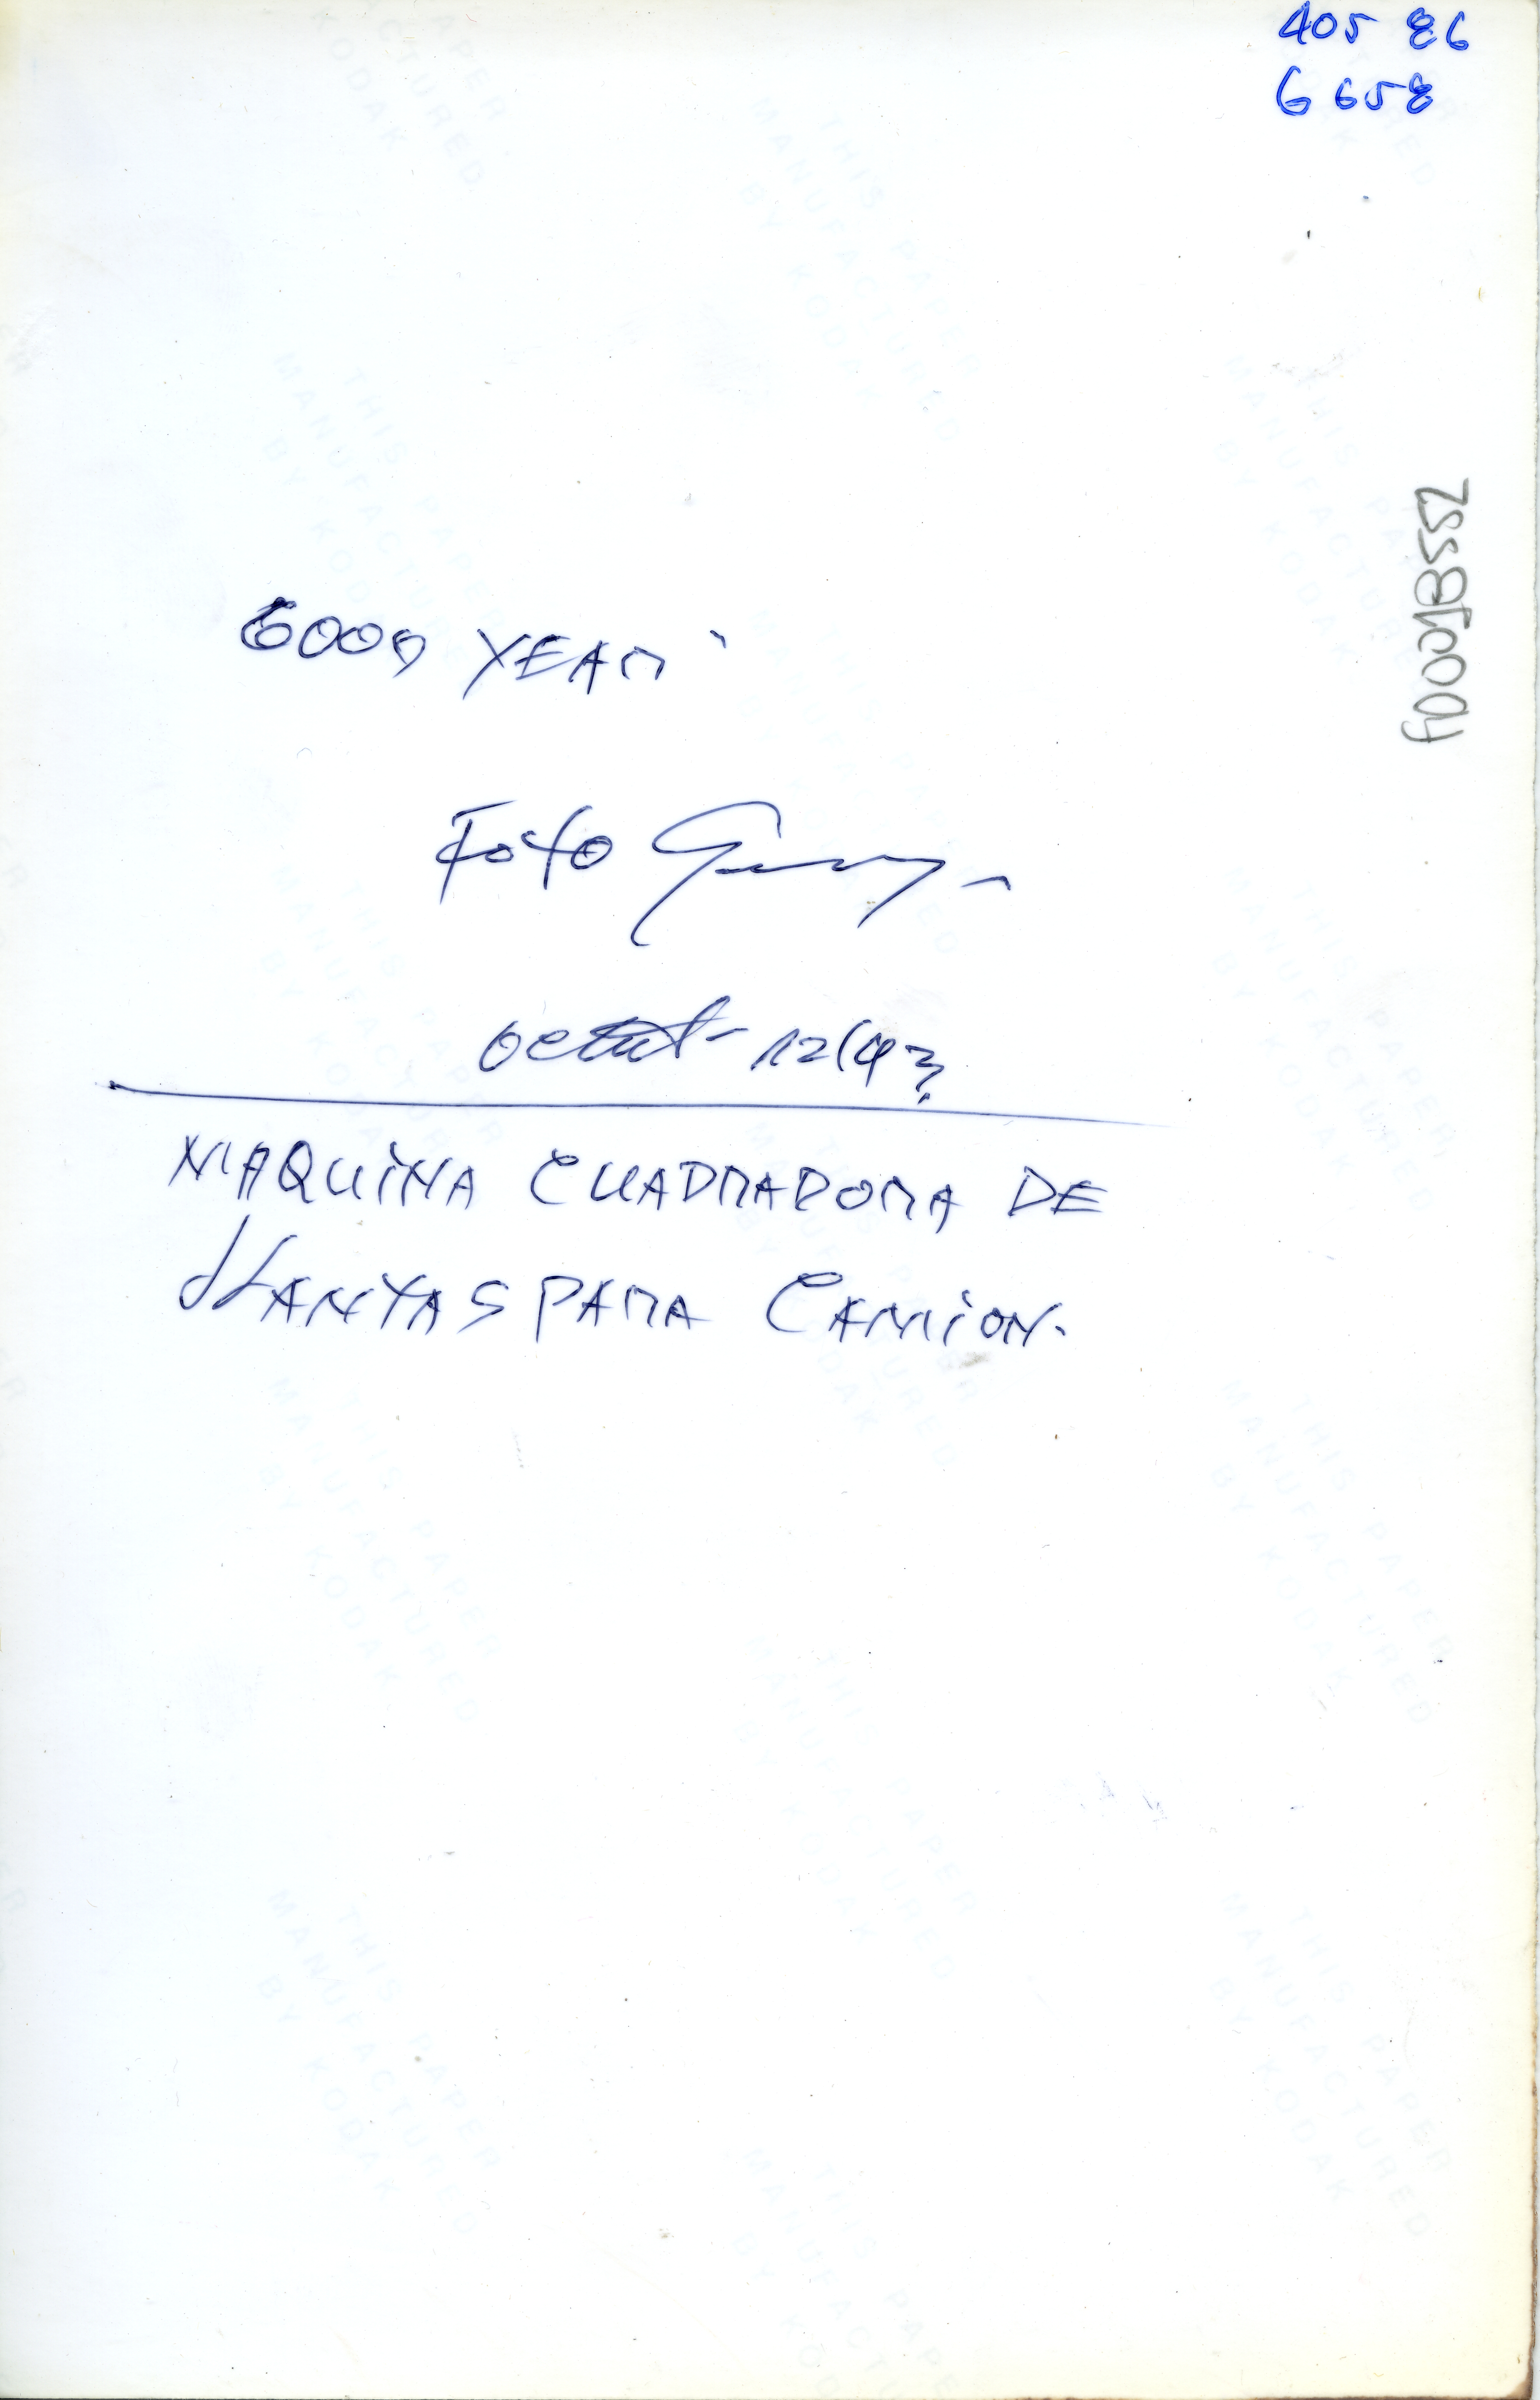 405 86
6 658
GOOD YEAR
FOTO
12/43
MAQUINA CUADRADORA DE
LLANTAS PARA CAMION.
THIS PAPER
MANUFACTURED
BY KODAK